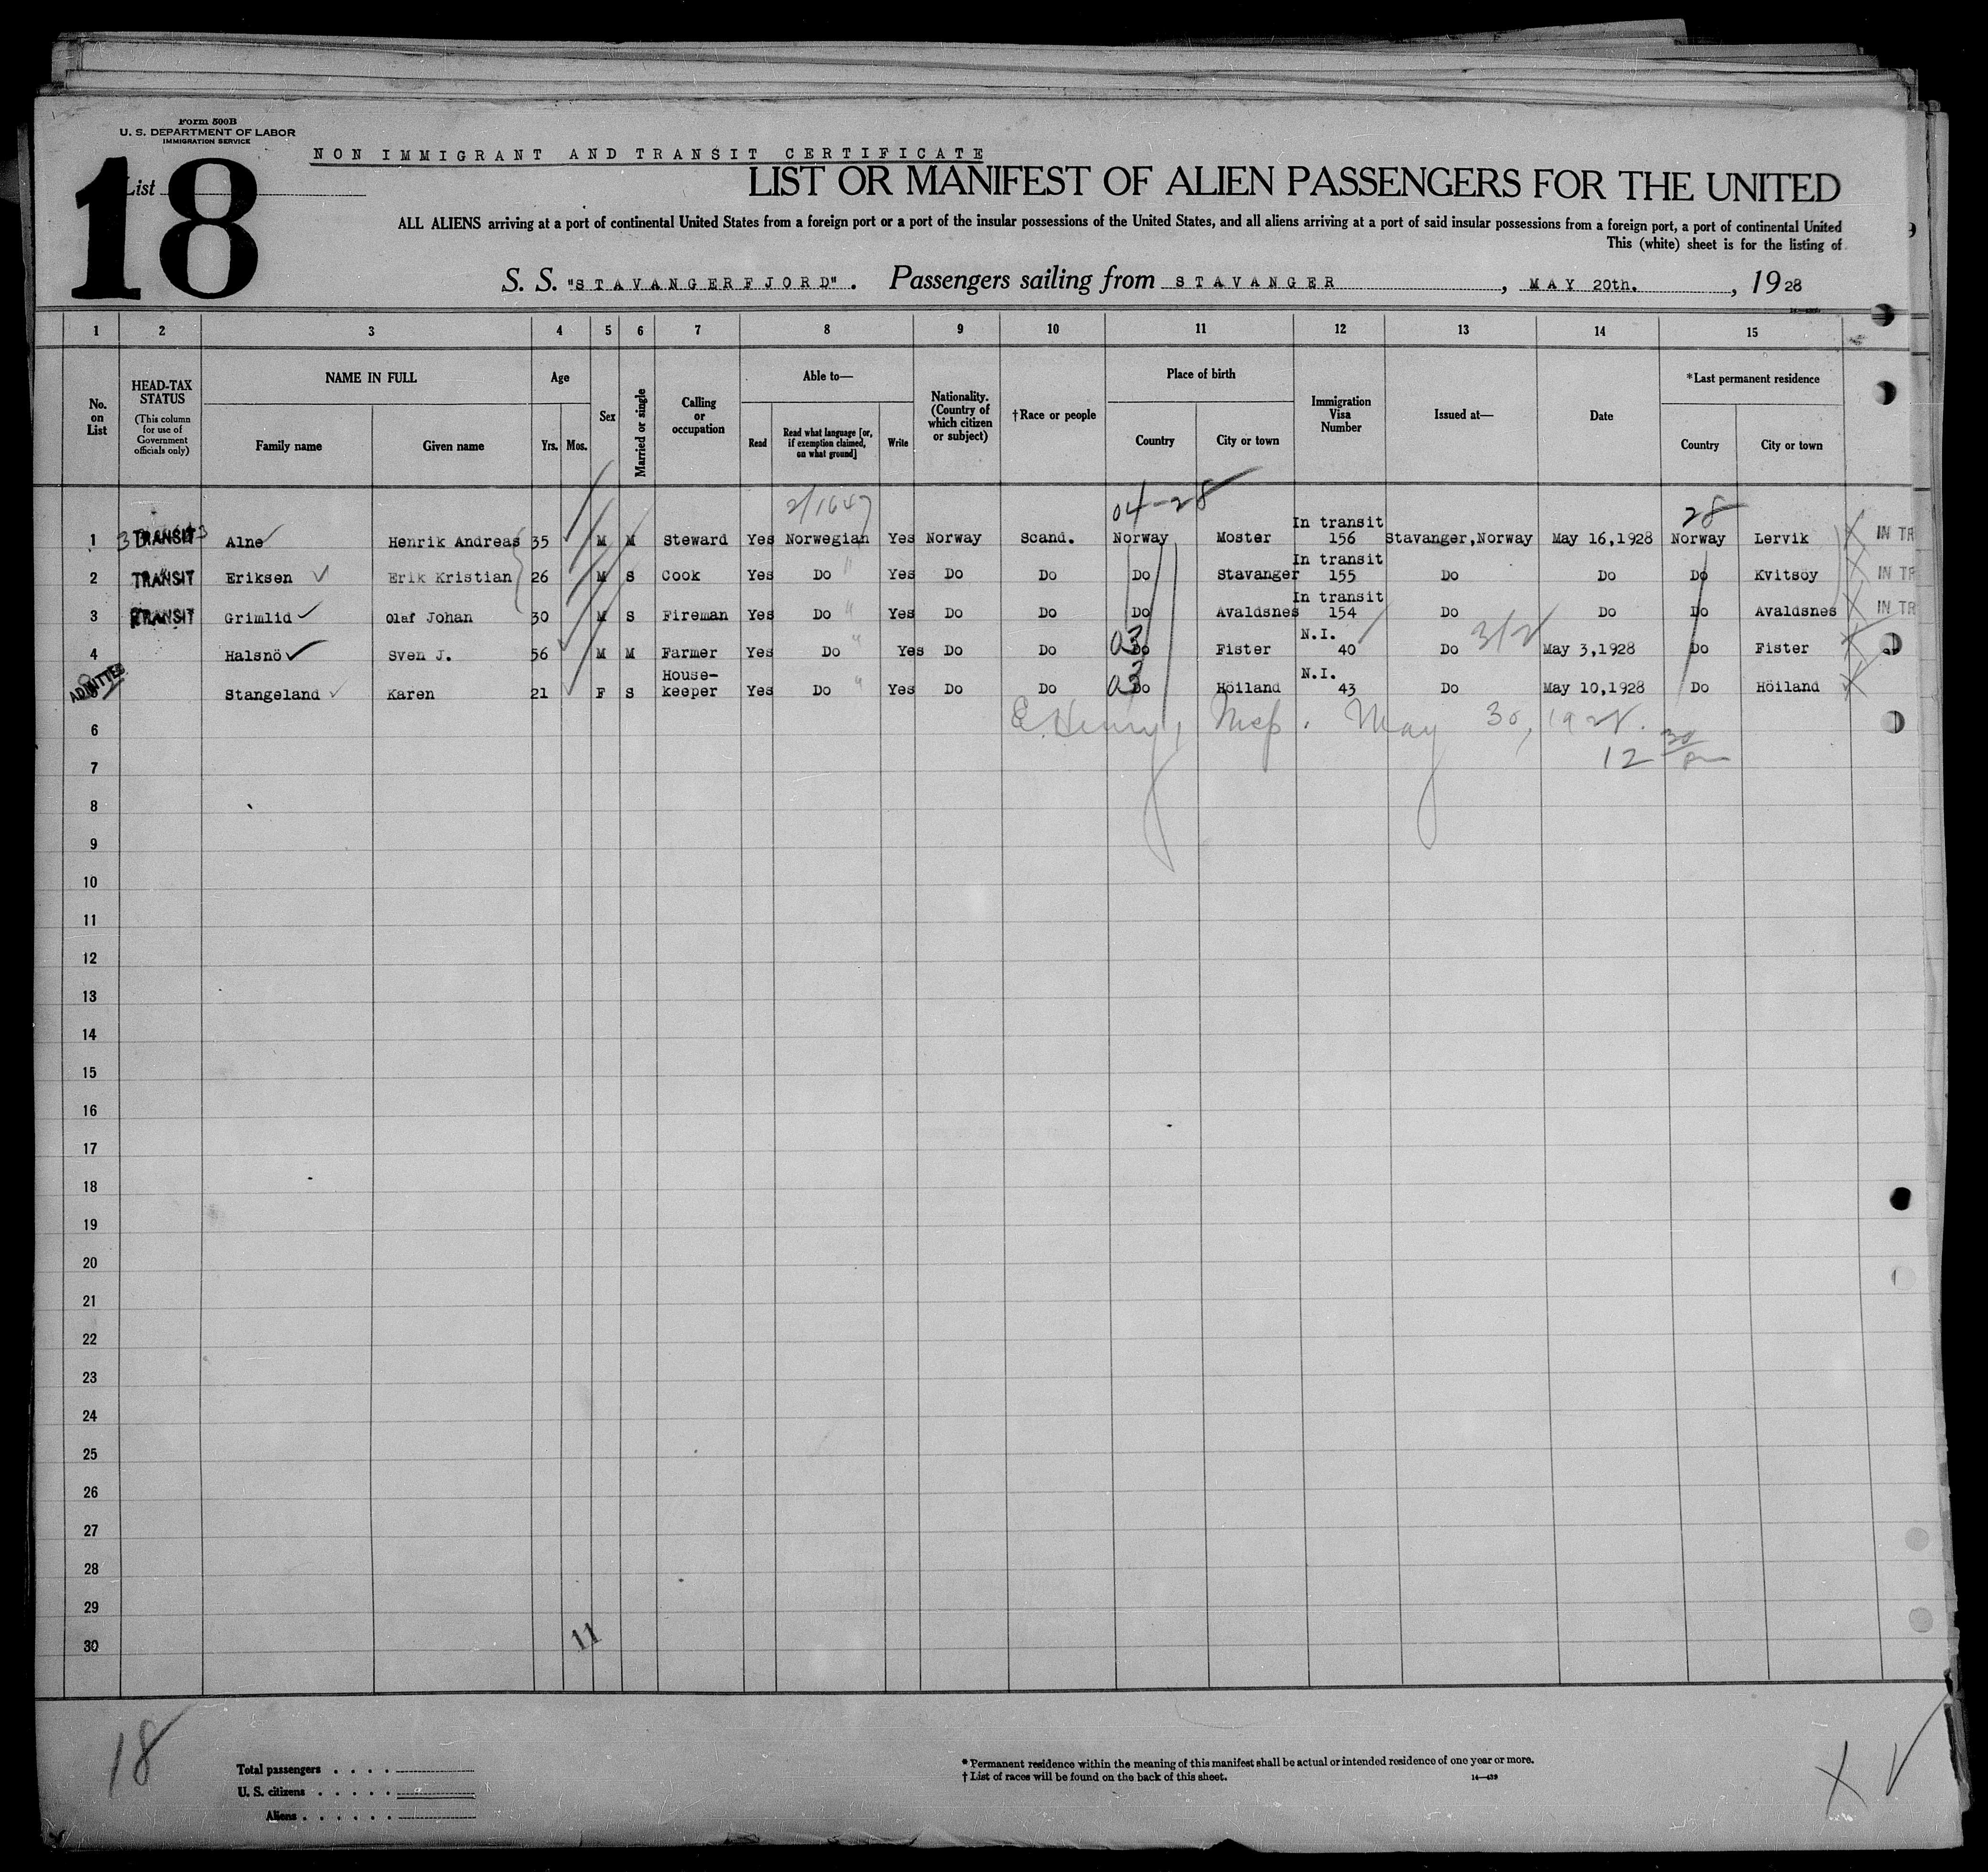 Form 500B
U. S. DEPARTMENT OF LABOR
IMMIGRATION SERVICE
NON IMMIGRANT AND TRANSIT CERTIFICATE
List
18
LIST OR MANIFEST OF ALIEN PASSENGERS FOR THE UNITED
ALL ALIENS arriving at a port of continental United States from a foreign port or a port of the insular possessions of the United States, and all aliens arriving at a port of said insular possessions from a foreign port, a port of continental United
This (white) sheet is for the listing of
S. S. "STAVANGERFJORD". Passengers sailing from STAVANGER, MAY 20th., 1928
1 2 3 4 5 6 7 8 9 10 11 12 13 14 15
No. on List
HEAD-TAX STATUS
(This column for use of Government officials only)
NAME IN FULL
Family name Given name
Age
Yrs. Mos.
Sex
Married or single
Calling or occupation
Able to—
Read
Read what language [or, if exemption claimed, on what ground]
Write
Nationality. (Country of which citizen or subject)
†Race or people
Place of birth
Country City or town
Immigration Visa Number
Issued at—
Date
*Last permanent residence
Country City or town
2/1647 04-28 28
1 TRANSIT Alne Henrik Andreas 35 M M Steward Yes Norwegian Yes Norway Scand. Norway Moster In transit 156 Stavanger,Norway May 16,1928 Norway Lervik IN TR
2 TRANSIT Eriksen Erik Kristian 26 M S Cook Yes Do Yes Do Do Do Stavanger In transit 155 Do Do Do Kvitsöy IN TR
3 TRANSIT Grimlid Olaf Johan 30 M S Fireman Yes Do Yes Do Do Do Avaldsnes In transit 154 Do Do Do Avaldsnes IN TR
4 Halsnö Sven J. 56 M M Farmer Yes Do Yes Do Do 03 Do Fister N.I. 40 Do May 3,1928 Do Fister
5 ADMITTED Stangeland Karen 21 F S House-keeper Yes Do Yes Do Do 03 Do Höiland N.I. 43 Do May 10,1928 Do Höiland
6 E. Henry, Insp. May 30, 1928.
7 12 30 pm
8
9
10
11
12
13
14
15
16
17
18
19
20
21
22
23
24
25
26
27
28
29
30
11
18
Total passengers . . . .
U. S. citizens . . . . .
Aliens . . . . . .
* Permanent residence within the meaning of this manifest shall be actual or intended residence of one year or more.
† List of races will be found on the back of this sheet.
14—439